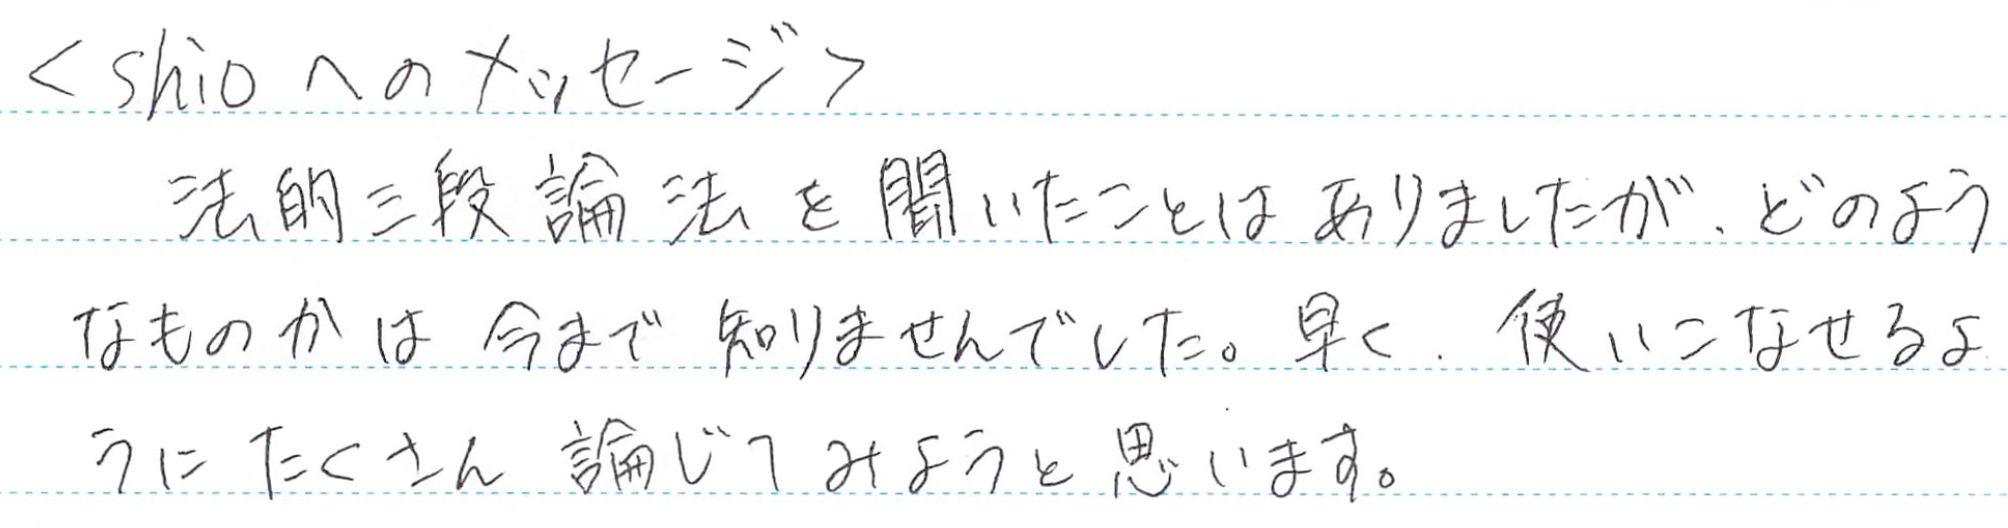 <shioへのメッセージ>
法的三段論法を聞いたことはありましたが、どのよう
なものかは今まで知りませんでした。早く、使いこなせるよ
うにたくさん論じてみようと思います。